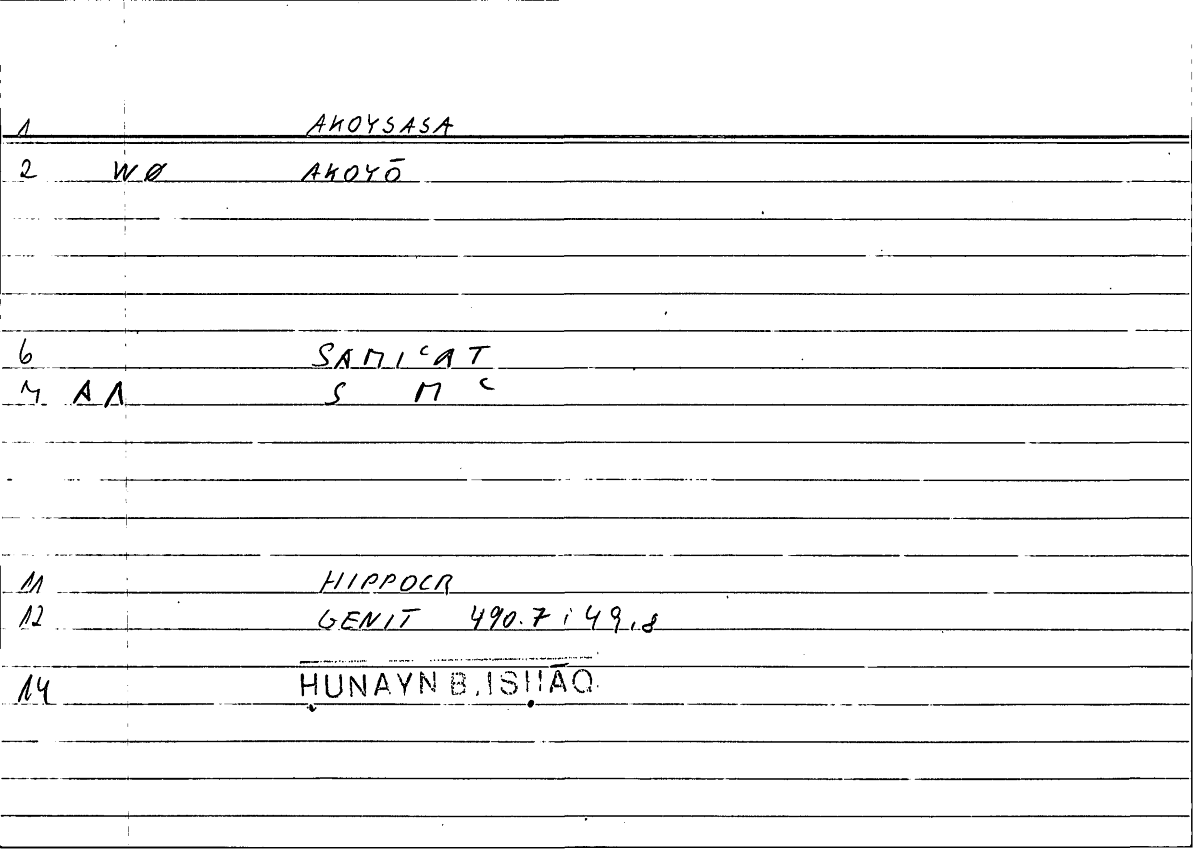 1 AKOYSASA
2 WØ AKOYŌ
6 SAMIʿAT
7 AA S M ʿ
11 HIPPOCR
12 GENIT 490.7; 49,8
14 ḤUNAYN B. ISḤĀQ